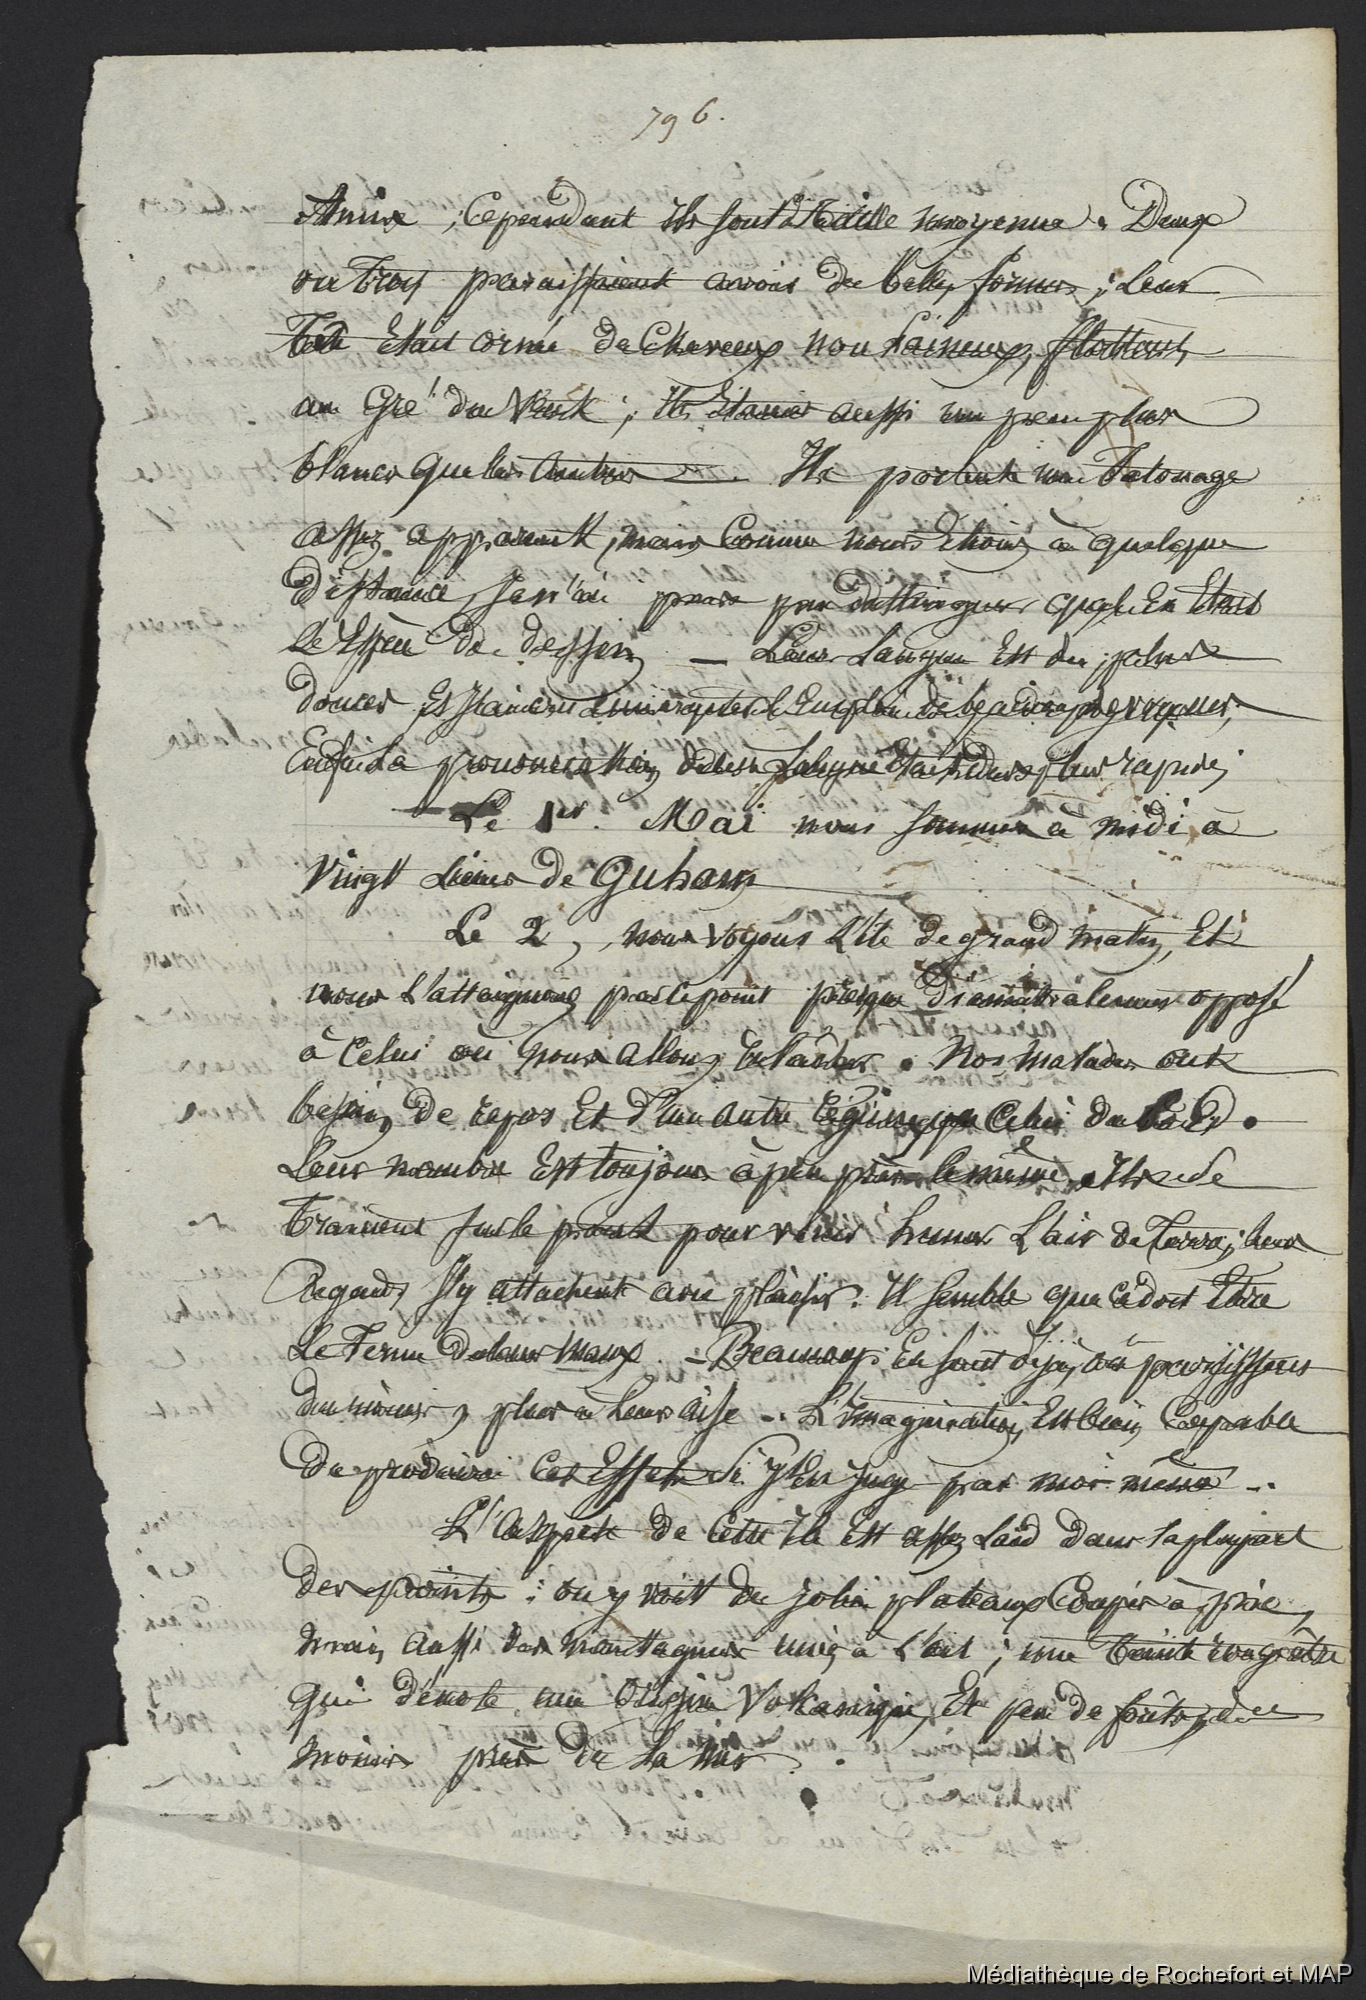 796.
; Cependant ils sont de taille moyenne. Deux
ou trois paraissaient avoir de belles formes ; Leur
tete Etait ornée de Cheveux non Laineux, flottans
au Gré du Vent ; Ils Etaient aussi un peu plus
blancs que les Autres — Ils portent un Tatouage
assez apparent, mais Comme nous Etions à quelque
distance, Je n'ai pas pu distinguer quel En Etait
le dessin — Leur Langue Est des plus
douces,
Enfin La prononciation Etait plus rapide ;
Le 1er. Mai nous sommes à midi à
Vingt Lieues de Guham
Le 2, nous voyons L'ile de grand matin, Et
nous L'atteignons par le point presque diamétralement opposé
à Celui où nous Allons relacher. Nos Malades ont
besoin de repos Et d'un autre régime que Celui du bord.
Leur nombre Est toujours à peu près le même. Ils se
trainent sur le pont pour venir humer L'air de Terre ; leurs
Regards s'y attachent avec plaisir. Il semble que ce doit Etre
Le Terme de leurs maux — Beaucoup En sont déja, ou paraissent
du moins, plus à leur aise — L'Imagination Est bien Capable
de produire Ces Effets Si J'En Juge par moi même —
L'Aspect de Cette Ile Est assez Laid dans la plupart
des points : on y voit de jolis plateaux Coupés à pic,
mais Aussi des montagnes ; une Teinte rougeâtre
qui dénote une Origine Volcanique, Et peu de forêts, du
moins près de La Mer.
Médiathèque de Rochefort et MAP